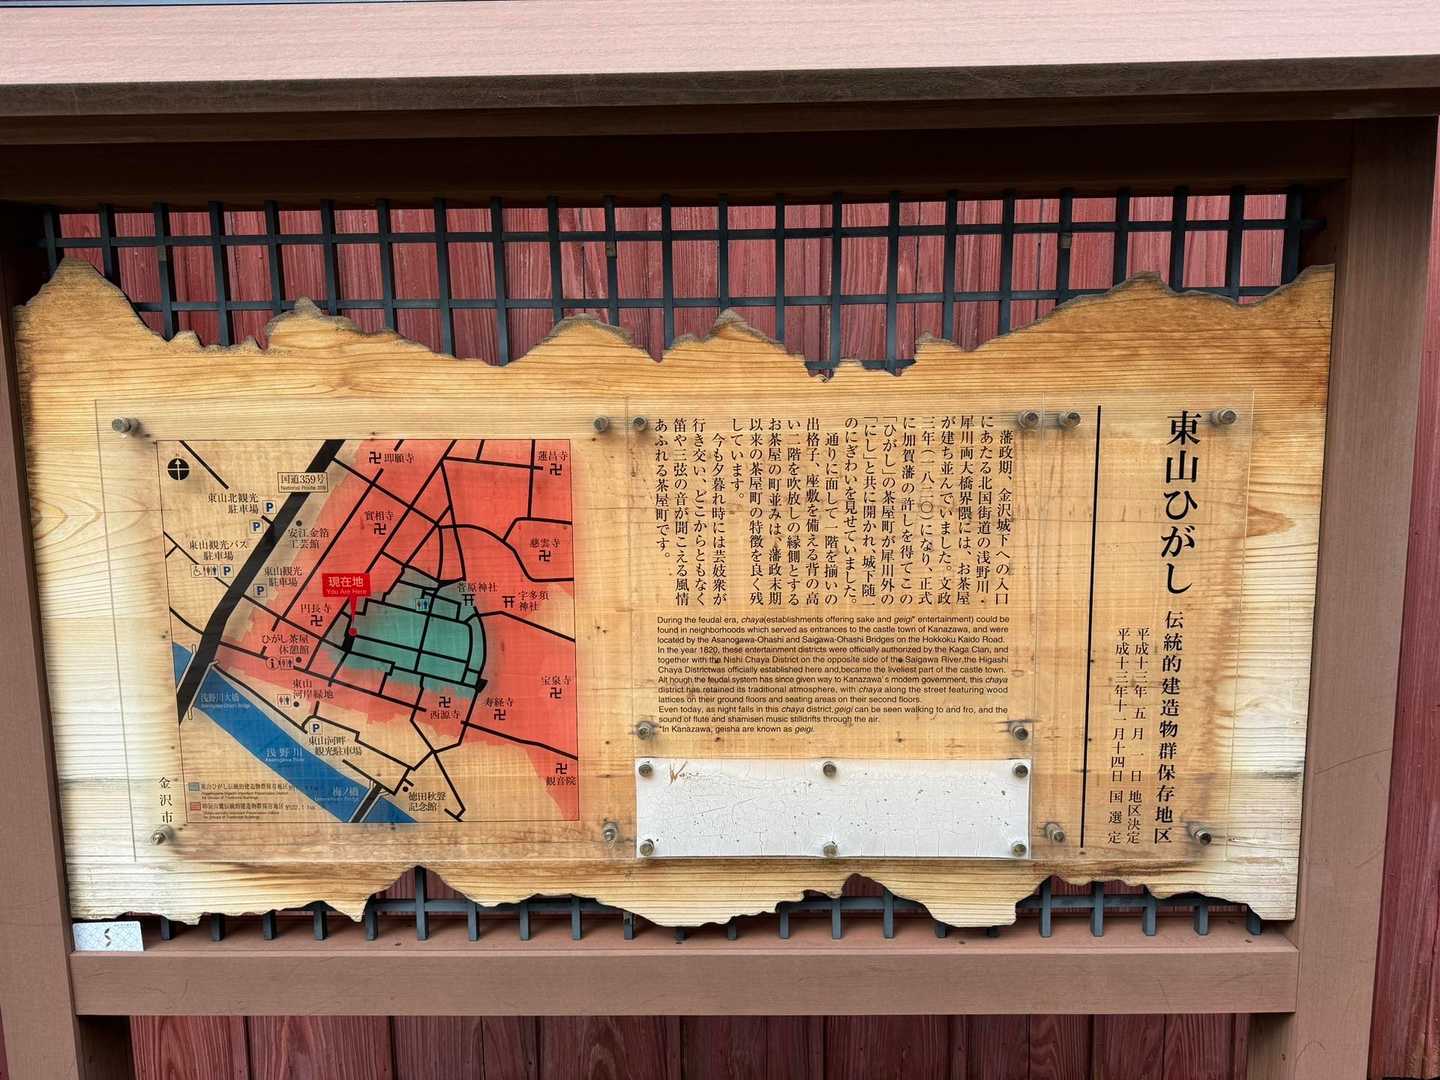 東山ひがし 伝統的建造物群保存地区
平成十三年五月一日 地区決定
平成十三年十一月十四日 国選定
藩政期、金沢城下への入口
にあたる北国街道の浅野川・
犀川両大橋界隈には、お茶屋
が建ち並んでいました。文政
三年(一八二〇)になり、正式
に加賀藩の許しを得てこの
「ひがし」の茶屋町が犀川外の
「にし」と共に開かれ、城下随一
のにぎわいを見せていました。
通りに面して一階を揃いの
出格子、座敷を備える背の高
い二階を吹放しの縁側とする
お茶屋の町並みは、藩政末期
以来の茶屋町の特徴を良く残
しています。
今も夕暮れ時には芸妓衆が
行き交い、どこからともなく
笛や三弦の音が聞こえる風情
あふれる茶屋町です。
During the feudal era, chaya(establishments offering sake and geigi* entertainment) could be
found in neighborhoods which served as entrances to the castle town of Kanazawa, and were
located by the Asanogawa-Ohashi and Saigawa-Ohashi Bridges on the Hokkoku Kaido Road.
In the year 1820, these entertainment districts were officially authorized by the Kaga Clan, and
together with the Nishi Chaya District on the opposite side of the Saigawa River,the Higashi
Chaya Districtwas officially established here and,became the liveliest part of the castle town.
Alt hough the feudal system has since given way to Kanazawa's modern government, this chaya
district has retained its traditional atmosphere, with chaya along the street featuring wood
lattices on their ground floors and seating areas on their second floors.
Even today, as night falls in this chaya district,geigi can be seen walking to and fro, and the
sound of flute and shamisen music stilldrifts through the air.
*In Kanazawa, geisha are known as geigi.
国道359号
National Route 359
即願寺
蓮昌寺
東山北観光
駐車場
P
P
安江金箔
工芸館
實相寺
慈雲寺
東山観光バス
駐車場
P
東山観光
駐車場
P
現在地
You Are Here
菅原神社
宇多須
神社
円長寺
ひがし茶屋
休憩館
東山
河岸緑地
浅野川大橋
Asanogawa-Ohashi Bridge
宝泉寺
寿経寺
西源寺
P
東山河畔
観光駐車場
浅野川
Asanogawa River
梅ノ橋
観音院
徳田秋聲
記念館
東山ひがし伝統的建造物群保存地区
金沢市